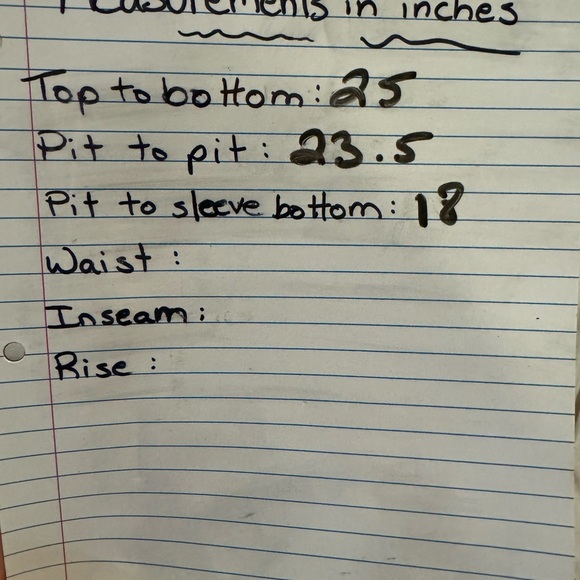 Measurements in inches
Top to bottom: 25
Pit to pit: 23.5
Pit to sleeve bottom: 18
Waist:
Inseam:
Rise: